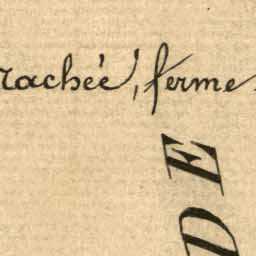 rachée, ferme
DE